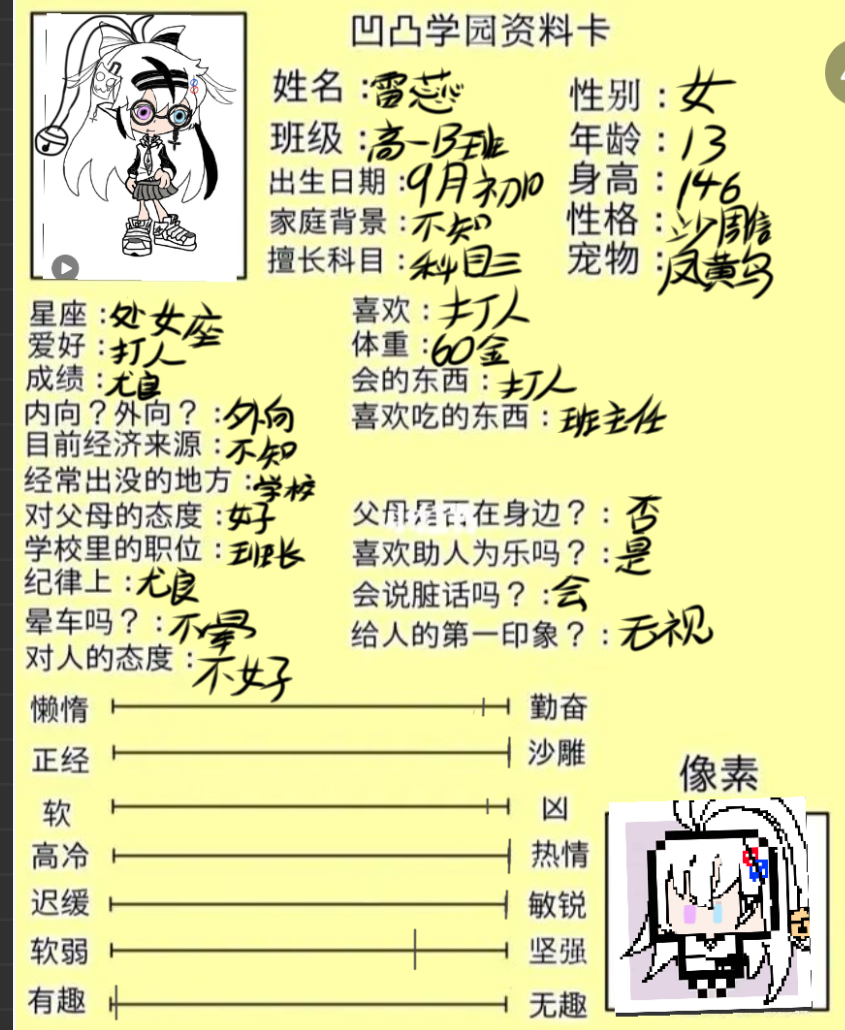 凹凸学园资料卡
姓名：雷蕊 性别：女
班级：高一B班 年龄：13
出生日期：9月初10 身高：146
家庭背景：不知 性格：沙雕
擅长科目：科目三 宠物：凤黄鸟
星座：处女座 喜欢：打人
爱好：打人 体重：60金
成绩：尤良 会的东西：打人
内向？外向？：外向 喜欢吃的东西：班主任
目前经济来源：不知
经常出没的地方：学校
对父母的态度：好 父母是否在身边？：否
学校里的职位：班长 喜欢助人为乐吗？：是
纪律上：尤良 会说脏话吗？：会
晕车吗？：不晕 给人的第一印象？：无视
对人的态度：不好
懒惰 勤奋
正经 沙雕
像素
软 凶
高冷 热情
迟缓 敏锐
软弱 坚强
有趣 无趣